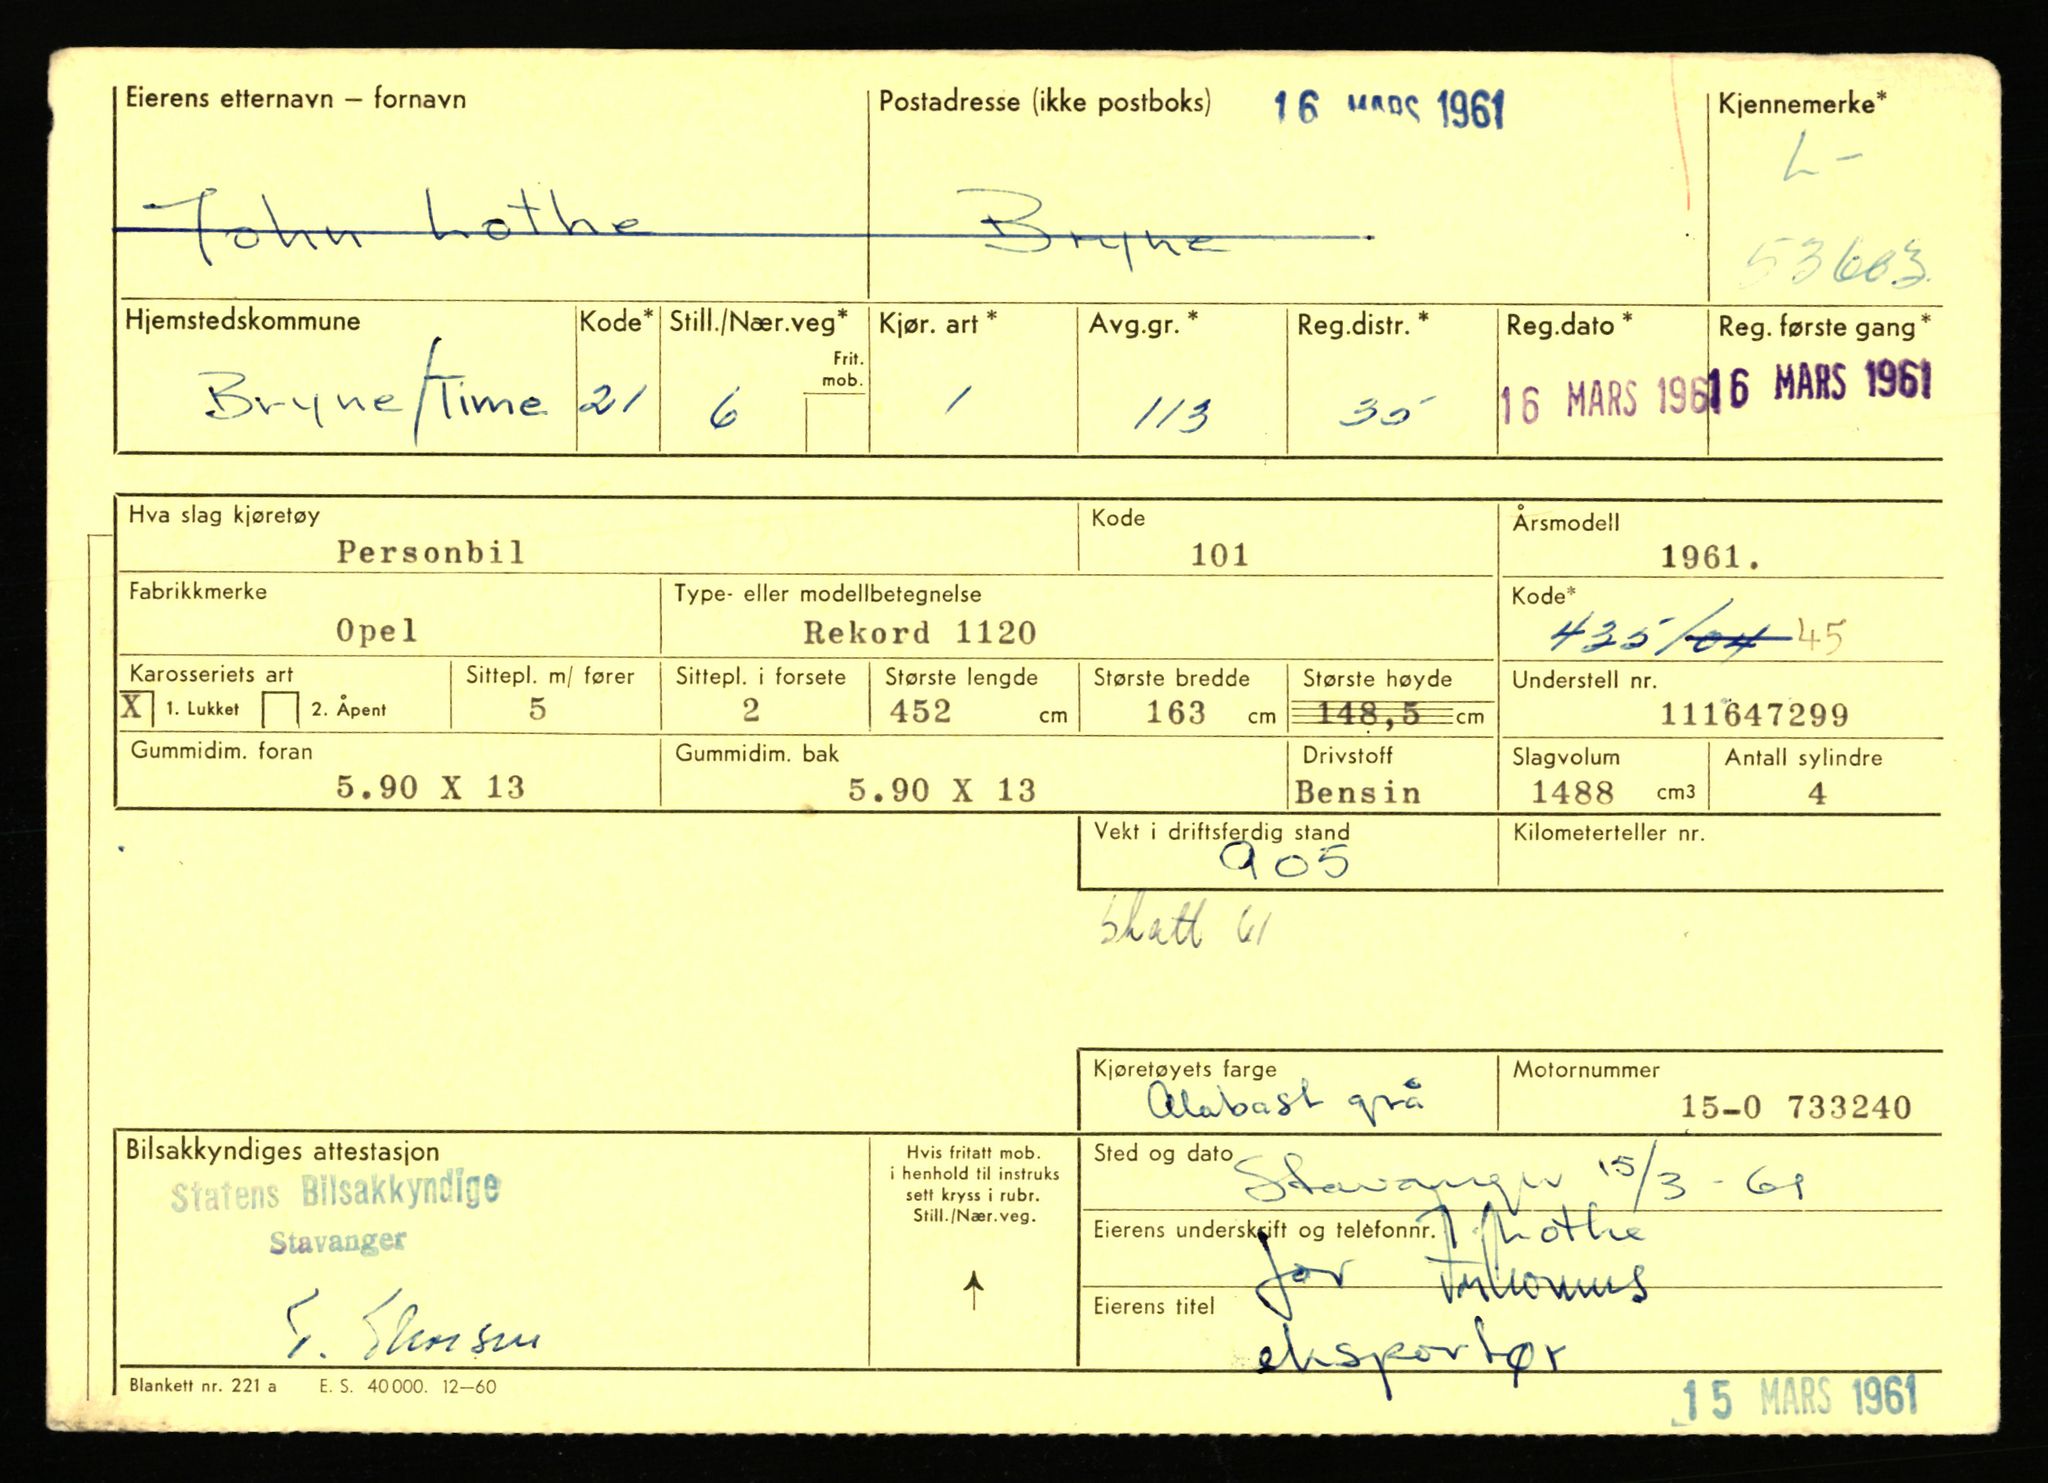 Eierens etternavn – fornavn
Postadresse (ikke postboks) 16 MARS 1961
Kjennemerke*
L-
John Lothe
Bryne
53603
Hjemstedskommune
Kode*
Still./Nær.veg*
Frit. mob.
Kjør. art *
Avg.gr. *
Reg.distr. *
Reg.dato *
Reg. første gang *
Bryne/Time
21
6
1
113
35
16 MARS 1961
16 MARS 1961
Hva slag kjøretøy
Personbil
Kode
101
Årsmodell
1961.
Fabrikkmerke
Opel
Type- eller modellbetegnelse
Rekord 1120
Kode*
435/04 45
Karosseriets art
X 1. Lukket 2. Åpent
Sittepl. m/ fører
5
Sittepl. i forsete
2
Største lengde
452 cm
Største bredde
163 cm
Største høyde
148,5 cm
Understell nr.
111647299
Gummidim. foran
5.90 X 13
Gummidim. bak
5.90 X 13
Drivstoff
Bensin
Slagvolum
1488 cm3
Antall sylindre
4
Vekt i driftsferdig stand
905
Kilometerteller nr.
skatt 61
Kjøretøyets farge
Alabast grå
Motornummer
15-0 733240
Bilsakkyndiges attestasjon
Statens Bilsakkyndige
Stavanger
Hvis fritatt mob.
i henhold til instruks
sett kryss i rubr.
Still./Nær.veg.
Sted og dato
Stavanger 15/3 - 61
Eierens underskrift og telefonnr.
J. Lothe
for
Eierens titel
eksportør
Blankett nr. 221 a E. S. 40 000. 12–60
15 MARS 1961